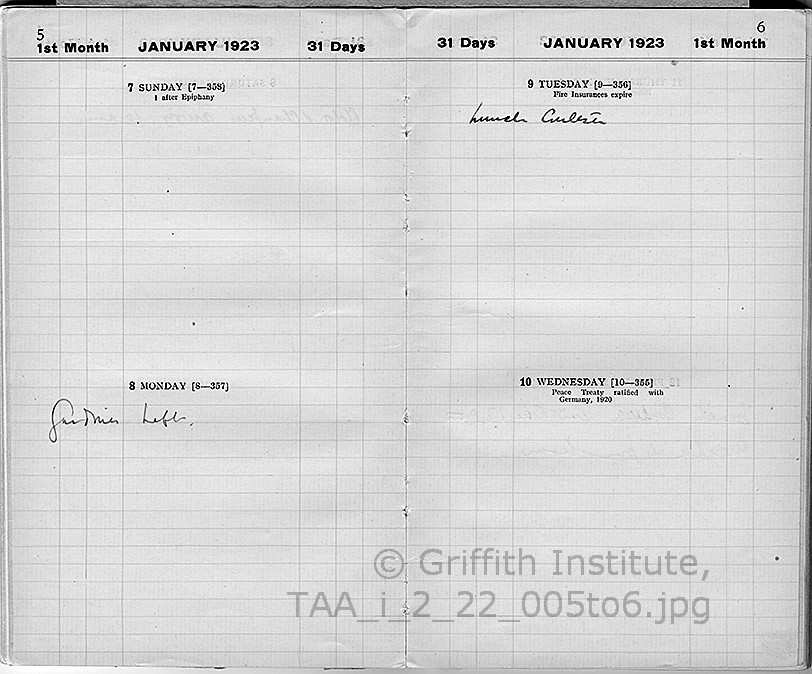 5
1st Month JANUARY 1923 31 Days
7 SUNDAY [7—358]
1 after Epiphany
8 MONDAY [8—357]
Gardiner left.
6
31 Days JANUARY 1923 1st Month
9 TUESDAY [9—356]
Fire Insurances expire
Lunch
10 WEDNESDAY [10—355]
Peace Treaty ratified with
Germany, 1920
© Griffith Institute,
TAA_i_2_22_005to6.jpg